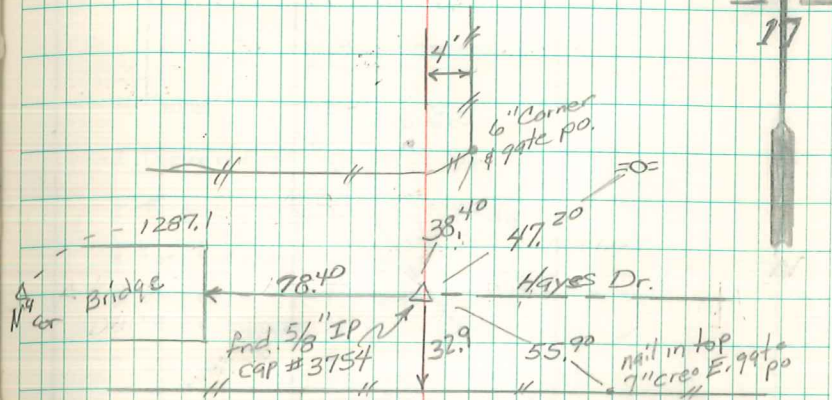 17
4'
6" Corner
& gate po.
1287.1
38.40
47.20
Bridge
78.40
Hayes Dr.
N¼
cor
fnd. 5/8" IP
cap #3754
32.9
55.90
nail in top
7" creo E. gate
po